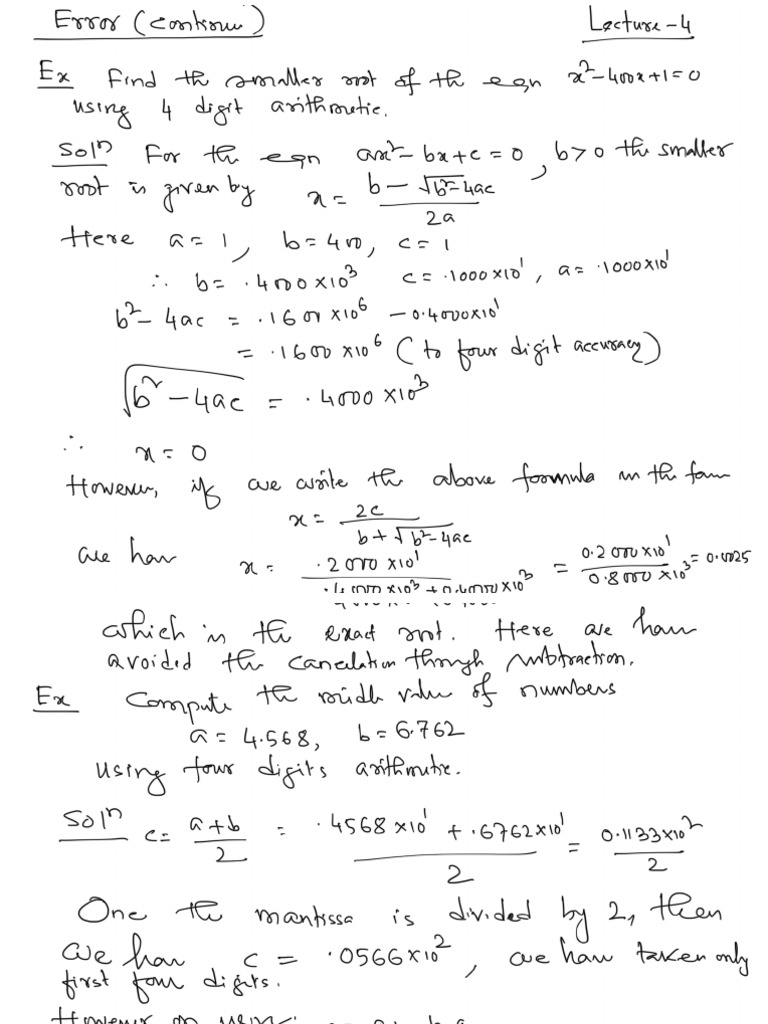 Error (continue) Lecture-4
Ex Find the smaller root of the eqn x²-400x+1=0
using 4 digit arithmetic.
Solⁿ For the eqn ax²-bx+c=0, b>0 the smaller
root is given by x = (b-√(b²-4ac))/2a
Here a=1, b=400, c=1
∴ b=.4000×10³ c=.1000×10¹, a=.1000×10¹
b²-4ac = .1600×10⁶ -0.4000×10¹
= .1600×10⁶ (to four digit accuracy)
√(b²-4ac) = .4000×10³
∴ x=0
However, if we write the above formula in the form
x = 2c/(b+√(b²-4ac))
we have x = .2000×10¹/(.4000×10³+0.4000×10³) = 0.2000×10¹/0.8000×10³ = 0.0025
which is the exact root. Here we have
avoided the cancelation through subtraction.
Ex Compute the middle value of numbers
a=4.568, b=6.762
using four digits arithmetic.
Solⁿ c = (a+b)/2 = (.4568×10¹+.6762×10¹)/2 = 0.1133×10²/2
One the mantissa is divided by 2, then
we have c = .0566×10², we have taken only
first four digits.
However on